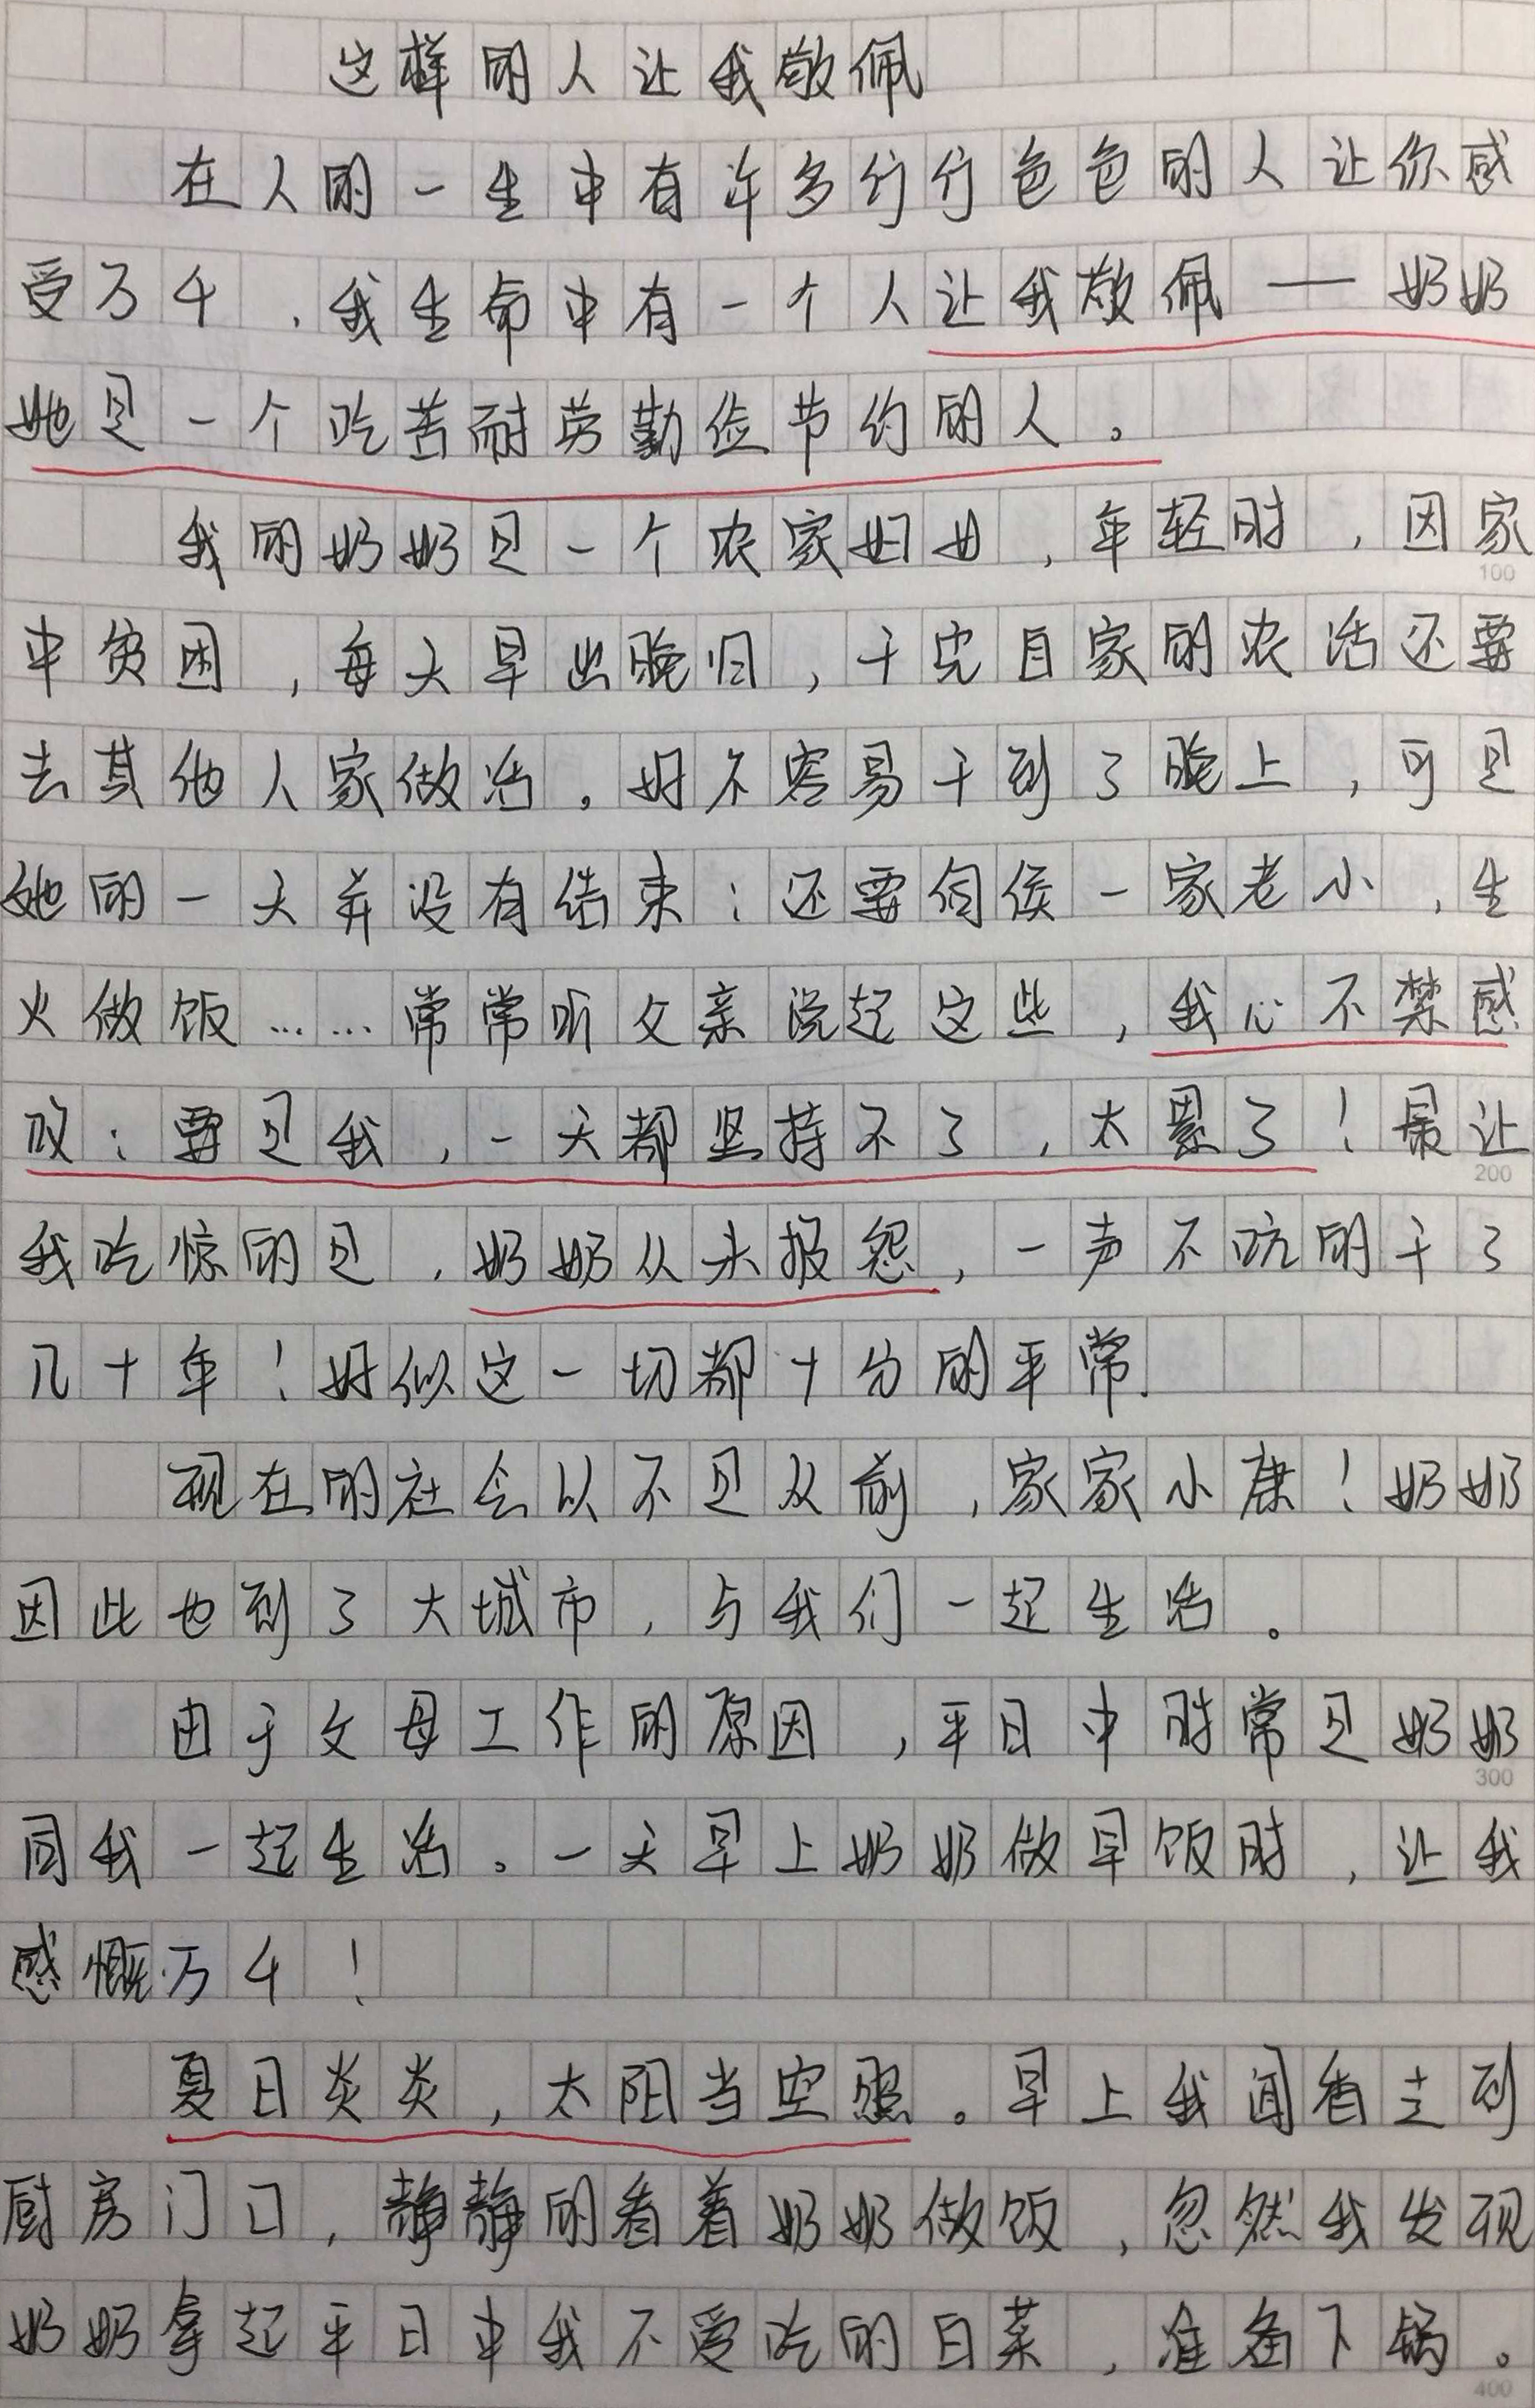 这样的人让我敬佩
在人的一生中有许多行行色色的人让你感
受万千,我生命中有一个人让我敬佩——奶奶
她是一个吃苦耐劳勤俭节约的人。
我的奶奶是一个农家妇女,年轻时,因家
100
中贫困,每天早出晚归,干完自家的农活还要
去其他人家做活。好不容易干到了晚上,可是
她的一天并没有结束;还要伺候一家老小,生
火做饭……常常听父亲说起这些,我心不禁感
叹:要是我,一天都坚持不了,太累了!最让
200
我吃惊的是,奶奶从未报怨,一声不吭的干了
几十年!好似这一切都十分的平常.
现在的社会以不是从前,家家小康!奶奶
因此也到了大城市,与我们一起生活。
由于父母工作的原因,平日中时常是奶奶
300
同我一起生活。一天早上奶奶做早饭时,让我
感慨万千!
夏日炎炎,太阳当空照。早上我闻香走到
厨房门口,静静的看着奶奶做饭,忽然我发现
奶奶拿起平日中我不爱吃的白菜,准备下锅。
400